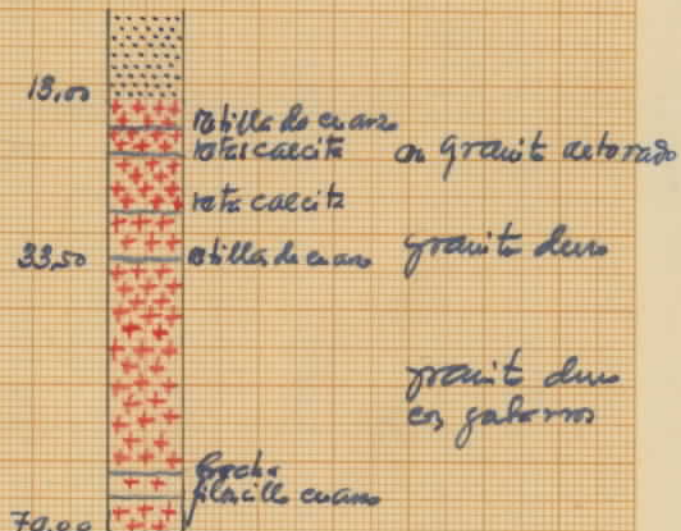 13,00
vetilla de cuarzo
veta calcita en granito alterado
veta calcita
33,50
vetillas de cuarzo granito duro
granito duro
con gabarros
brecha
filoncillo cuarzo
70,00